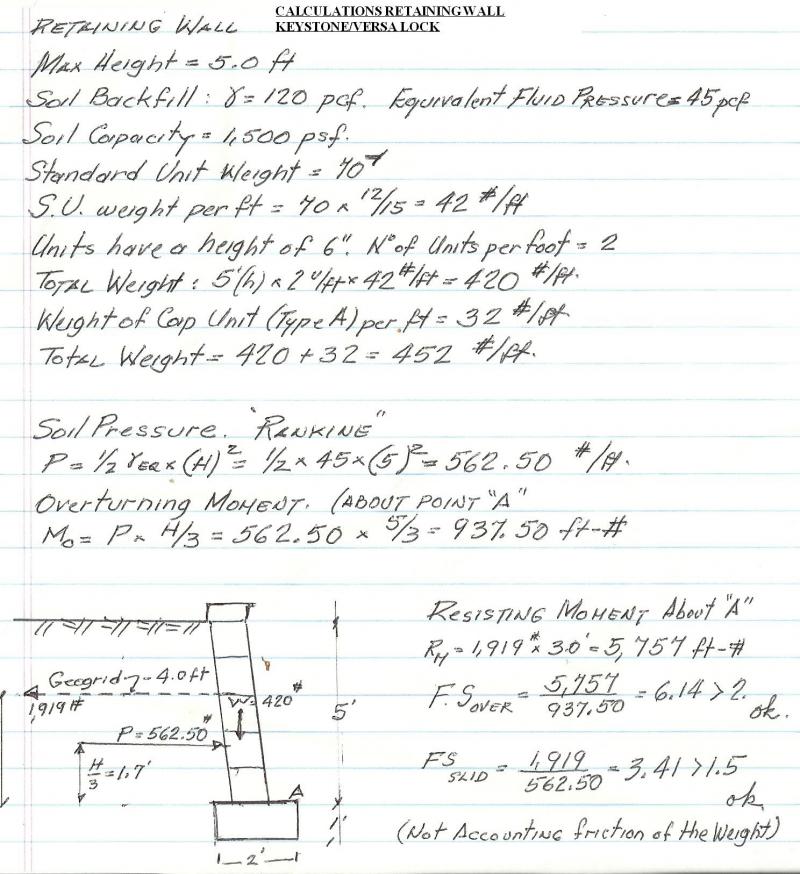 CALCULATIONS RETAINING WALL
KEYSTONE/VERSA LOCK
RETAINING WALL
Max Height = 5.0 ft
Soil Backfill : γ = 120 pcf. Equivalent Fluid Pressure = 45 pcf
Soil Capacity = 1,500 psf.
Standard Unit Weight = 70#
S.U. weight per ft = 70 x 12/15 = 42 #/ft
Units have a height of 6". Nº of Units per foot = 2
Total Weight : 5'(h) x 2 u/ft x 42 #/ft = 420 #/ft.
Weight of Cap Unit (Type A) per ft = 32 #/ft.
Total Weight = 420 + 32 = 452 #/ft.
Soil Pressure. "RANKINE"
P = 1/2 γEQ x (H)² = 1/2 x 45 x (5)² = 562.50 #/ft.
Overturning Moment. (ABOUT POINT "A"
Mo = P x H/3 = 562.50 x 5/3 = 937.50 ft-#
Resisting Moment About "A"
RM = 1,919# x 3.0' = 5,757 ft-#
F.S OVER = 5,757/937.50 = 6.14 > 2. ok.
FS SLID = 1,919/562.50 = 3.41 > 1.5 ok.
(Not Accounting friction of the Weight)
Geogrid - 4.0 ft
1,919#
W = 420#
P = 562.50#
H/3 = 1.7'
5'
A
1'
2'